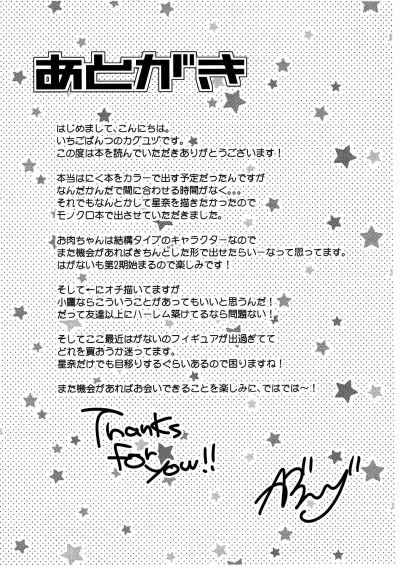 あとがき
はじめまして、こんにちは。
いちごぱんつのカグユヅです。
この度は本を読んでいただきありがとうございます！
本当はにく本をカラーで出す予定だったんですが
なんだかんだで間に合わせる時間がなく。。。
それでもなんとかして星奈を描きたかったので
モノクロ本で出させていただきました。
お肉ちゃんは結構タイプのキャラクターなので
また機会があればきちんとした形で出せたらいーなって思ってます。
はがないも第2期始まるので楽しみです！
そして←にオチ描いてますが
小鷹ならこういうことがあってもいいと思うんだ！
だって友達以上にハーレム築けてるなら問題ない！
そしてここ最近はがないのフィギュアが出過ぎてて
どれを買おうか迷ってます。
星奈だけでも目移りするぐらいあるので困りますね！
また機会があればお会いできることを楽しみに、ではでは～！
Thanks
for
you!!